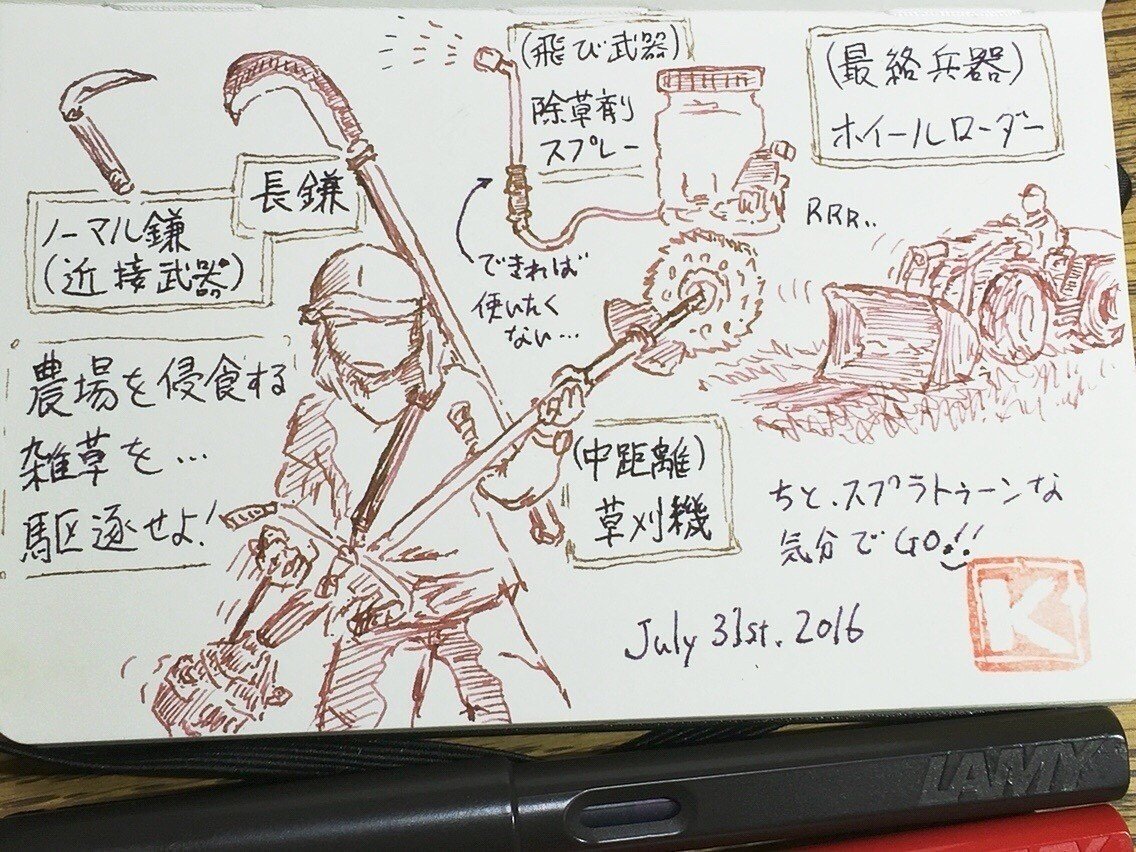 (飛び武器)
除草剤
スプレー
(最終兵器)
ホイールローダー
長鎌
ノーマル鎌
(近接武器)
RRR..
できれば
使いたく
ない…
農場を侵食する
雑草を…
駆逐せよ!
(中距離)
草刈機
ちと、スプラトゥーンな
気分でGO!!
July 31st. 2016
K
LAMY
LAMY